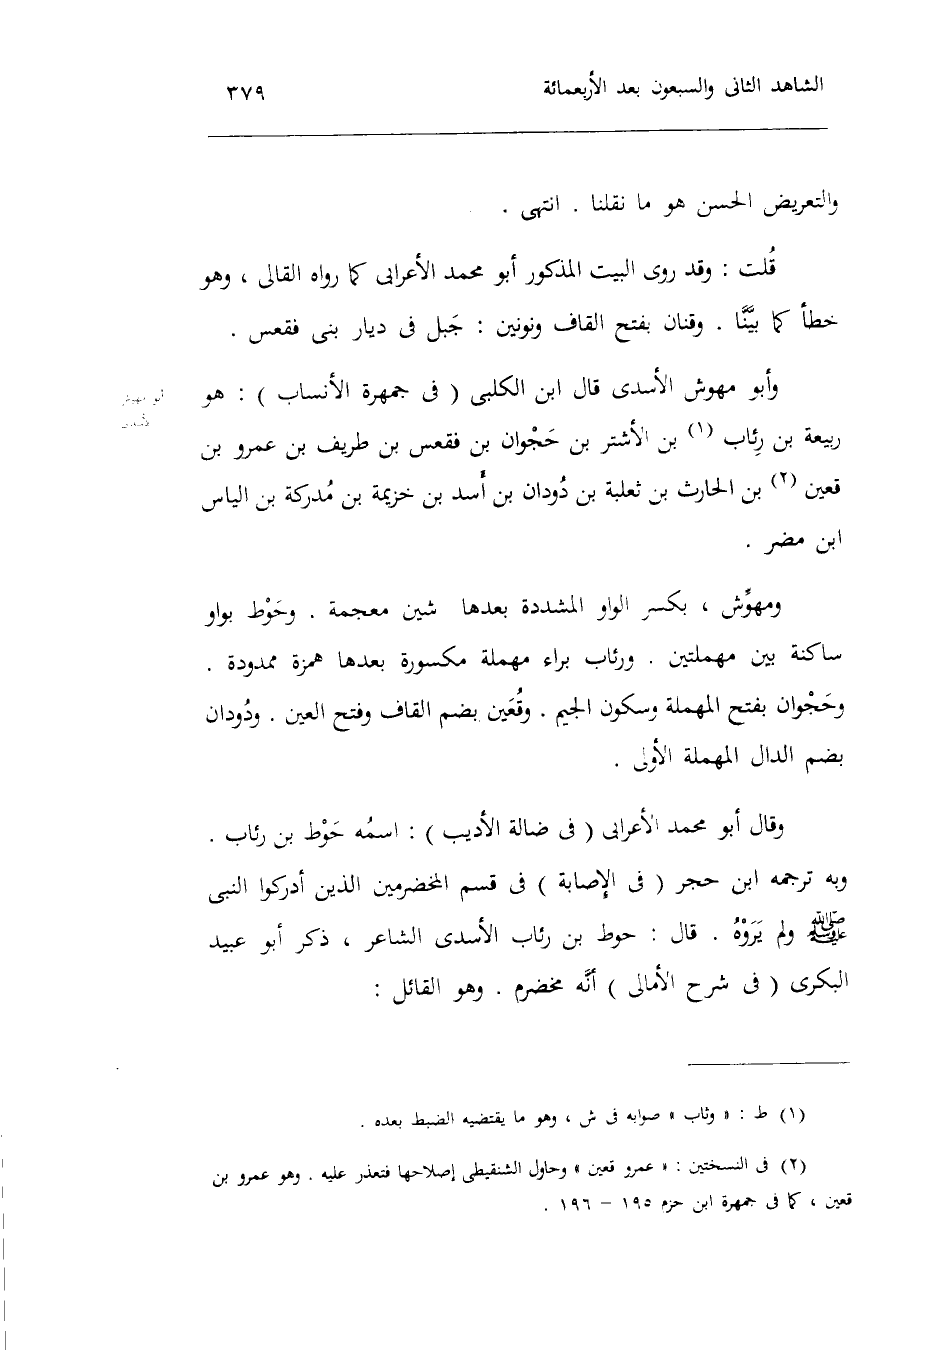 الشاهد الثانى والسبعون بعد الأربعمائة ٣٧٩
والتعريض الحسن هو ما نقلنا . انتهى .
قُلت : وقد روى البيت المذكور أبو محمد الأعرابى كما رواه القالى ، وهو
خطأ كما بيَّنَّا . وقنان بفتح القاف ونونين : جَبل فى ديار بنى فقعس .
أبو مهوش
الأسدى
وأبو مهوش الأسدى قال ابن الكلبى ( فى جمهرة الأنساب ) : هو
ربيعة بن رِئاب (١) بن الأشتر بن حَجْوان بن فقعس بن طريف بن عمرو بن
قعين (٢) بن الحارث بن ثعلبة بن دُودان بن أَسد بن خزيمة بن مُدركة بن الياس
ابن مضر .
ومهوِّش ، بكسر الواو المشددة بعدها شين معجمة . وحَوْط بواو
ساكنة بين مهملتين . ورئاب براء مهملة مكسورة بعدها همزة ممدودة .
وحَجْوان بفتح المهملة وسكون الجيم . وقُعَين بضم القاف وفتح العين . ودُودان
بضم الدال المهملة الأولى .
وقال أبو محمد الأعرابى ( فى ضالة الأديب ) : اسمُه حَوْط بن رئاب .
وبه ترجمه ابن حجر ( فى الإِصابة ) فى قسم المخضرمين الذين أدركوا النبى
ﷺ ولم يَرَوْهُ . قال : حوط بن رئاب الأسدى الشاعر ، ذكر أبو عبيد
البكرى ( فى شرح الأمالى ) أنَّه مخضرم . وهو القائل :
(١) ط : « وثاب » صوابه فى ش ، وهو ما يقتضيه الضبط بعده .
(٢) فى النسختين : « عمرو قعين » وحاول الشنقيطى إصلاحها فتعذر عليه . وهو عمرو بن
قعين ، كما فى جمهرة ابن حزم ١٩٥ – ١٩٦ .